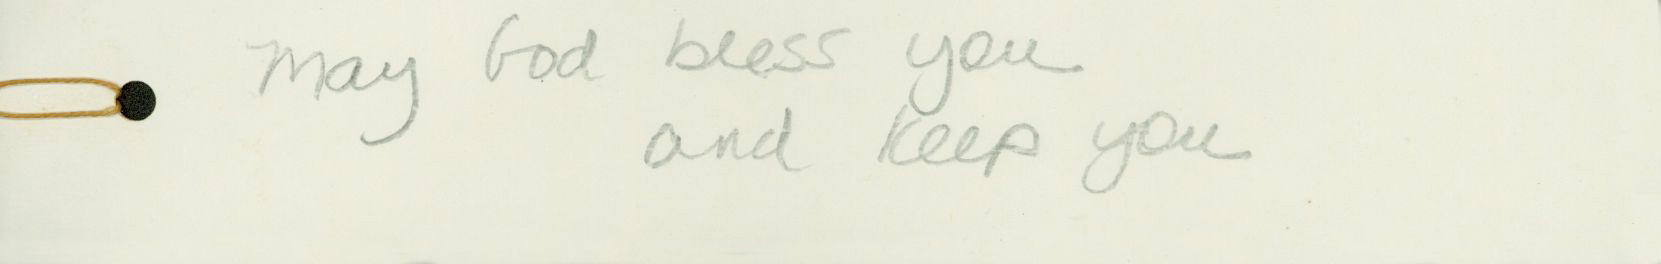 May God bless you
and keep you